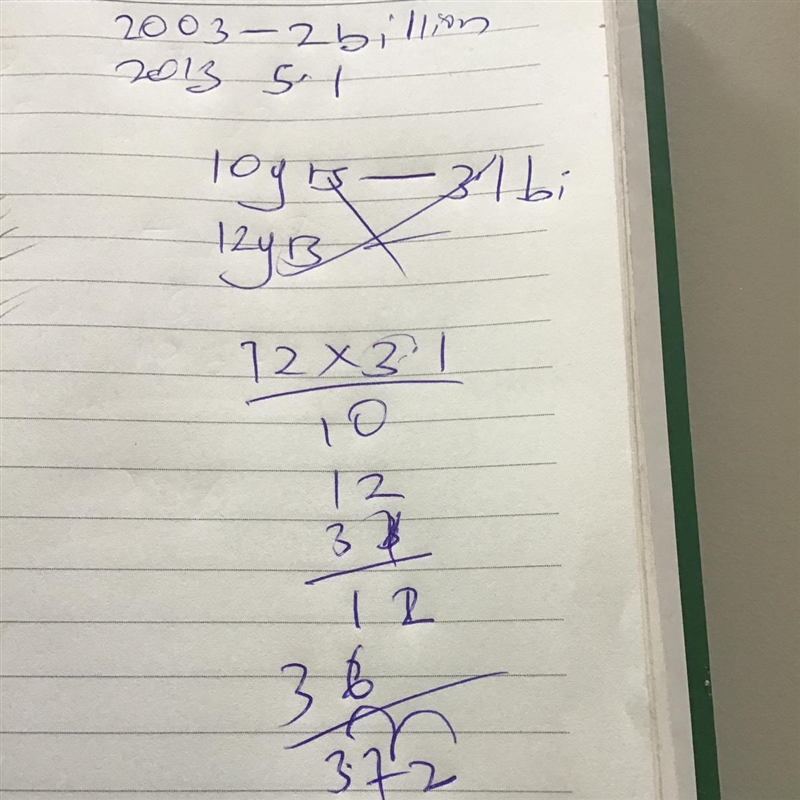 2003 - 2 billion
2013 5.1
10yrs - 3.1 bi
12yrs
12 × 3.1
10
12
31
12
36
3.72